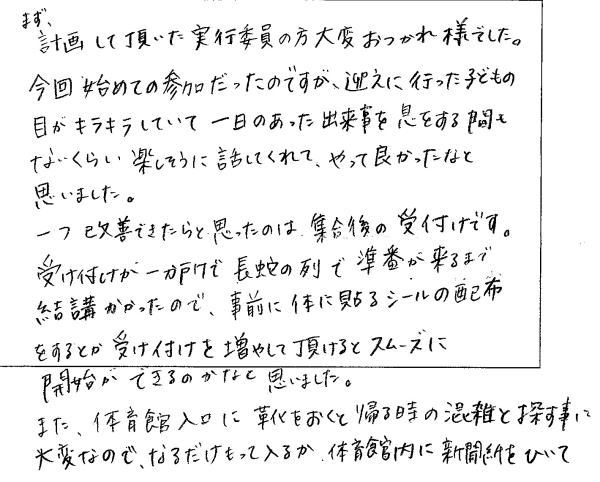 まず、
計画して頂いた実行委員の方大変おつかれ様でした。
今回始めての参加だったのですが、迎えに行った子どもの
目がキラキラしていて一日のあった出来事を息をする間も
ないくらい楽しそうに話してくれて、やって良かったなと
思いました。
一つ改善できたらと思ったのは集合後の受付けです。
受け付けが一か所で長蛇の列で準番が来るまで
結講かかったので、事前に体に貼るシールの配布
をするとか受け付けを増やして頂けるとスムーズに
開始ができるのかなと思いました。
また、体育館入口に靴をおくと帰る時の混雑と探す事に
大変なので、なるだけもって入るか、体育館内に新聞紙をひいて